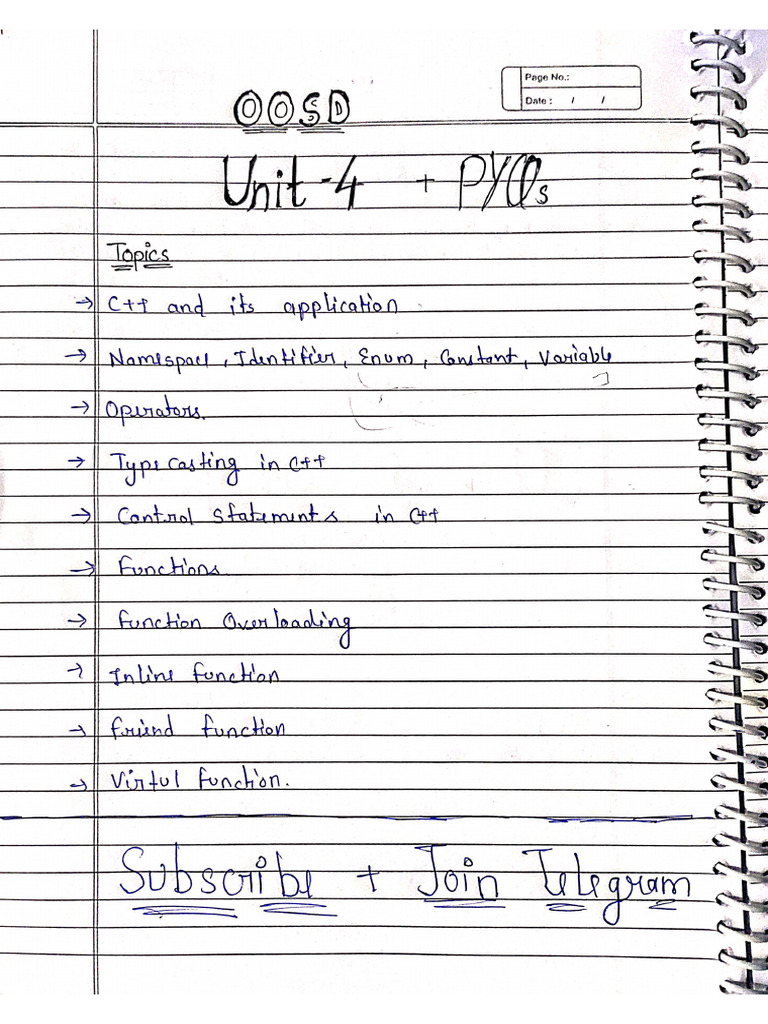 Page No.:
Date : / /
OOSD
Unit-4 + PYQs
Topics
→ C++ and its application
→ Namespace, Identifier, Enum, Constant, Variable
→ Operators.
→ Type casting in C++
→ Control Statements in C++
→ Functions
→ Function Overloading
→ Inline function
→ friend function
→ Virtul function.
Subscribe + Join Telegram